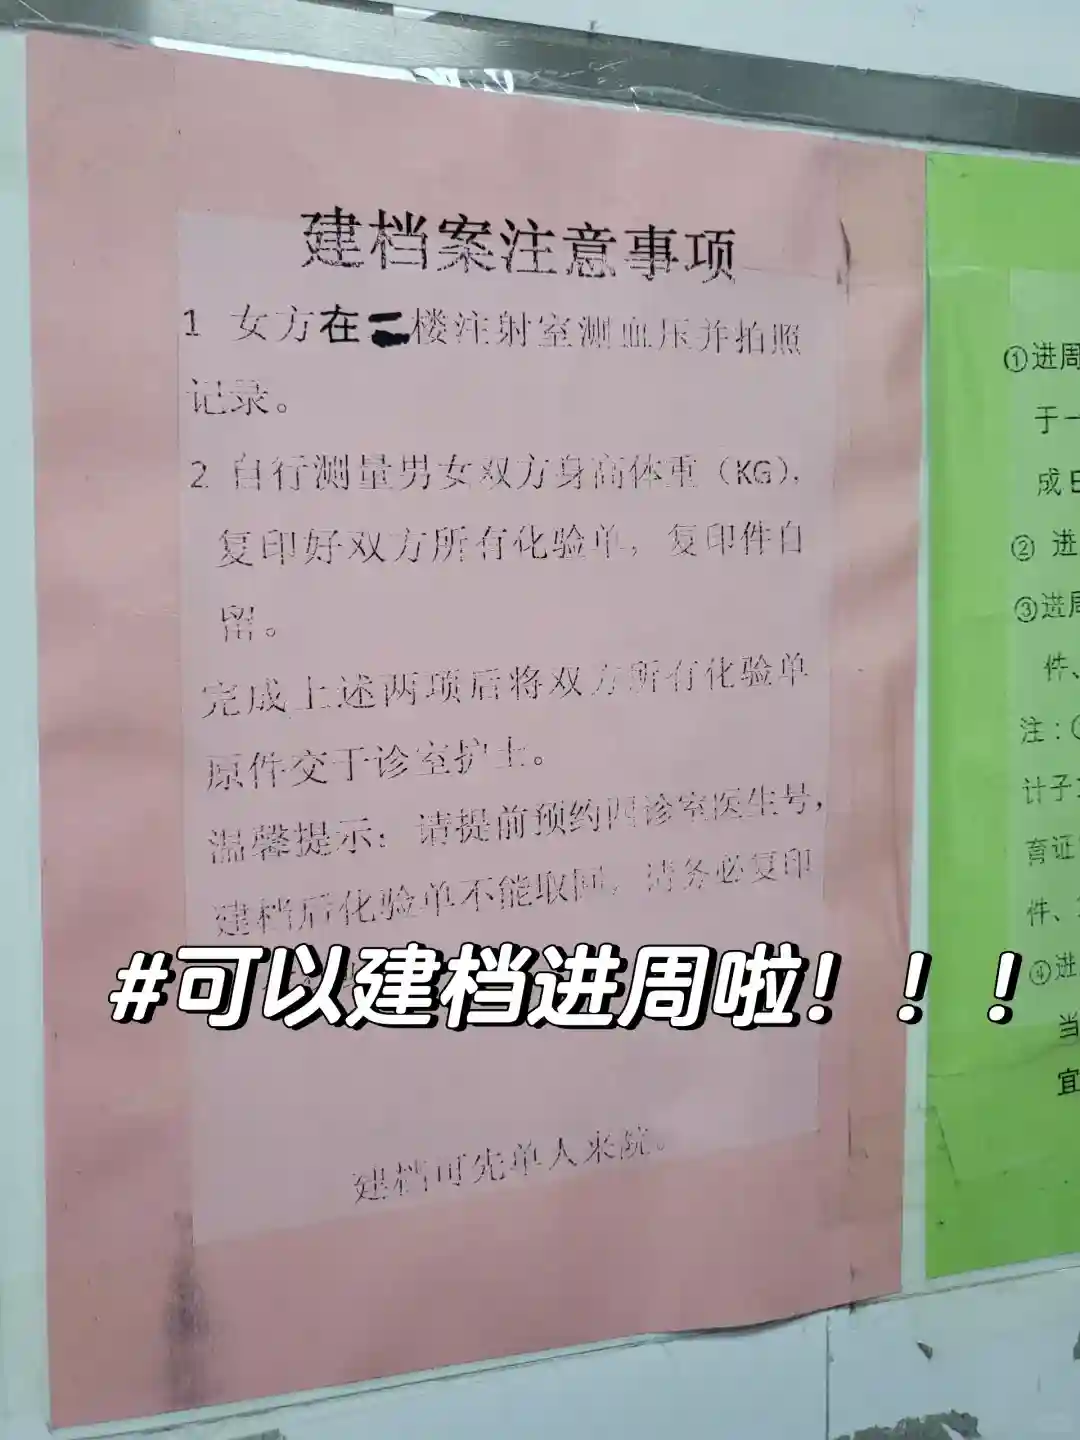 建档案注意事项
1 女方在二楼注射室测血压并拍照
记录。
2 自行测量男女双方身高体重（KG），
复印好双方所有化验单，复印件自
留。
完成上述两项后将双方所有化验单
原件交于诊室护士。
温馨提示：请提前预约四诊室医生号，
建档后化验单不能取回，请务必复印
#可以建档进周啦！！！
建档可先单人来院。
①进周
于一
成日
② 进
③进周
件、
注：
计子
育证
件、
④进
当
宜